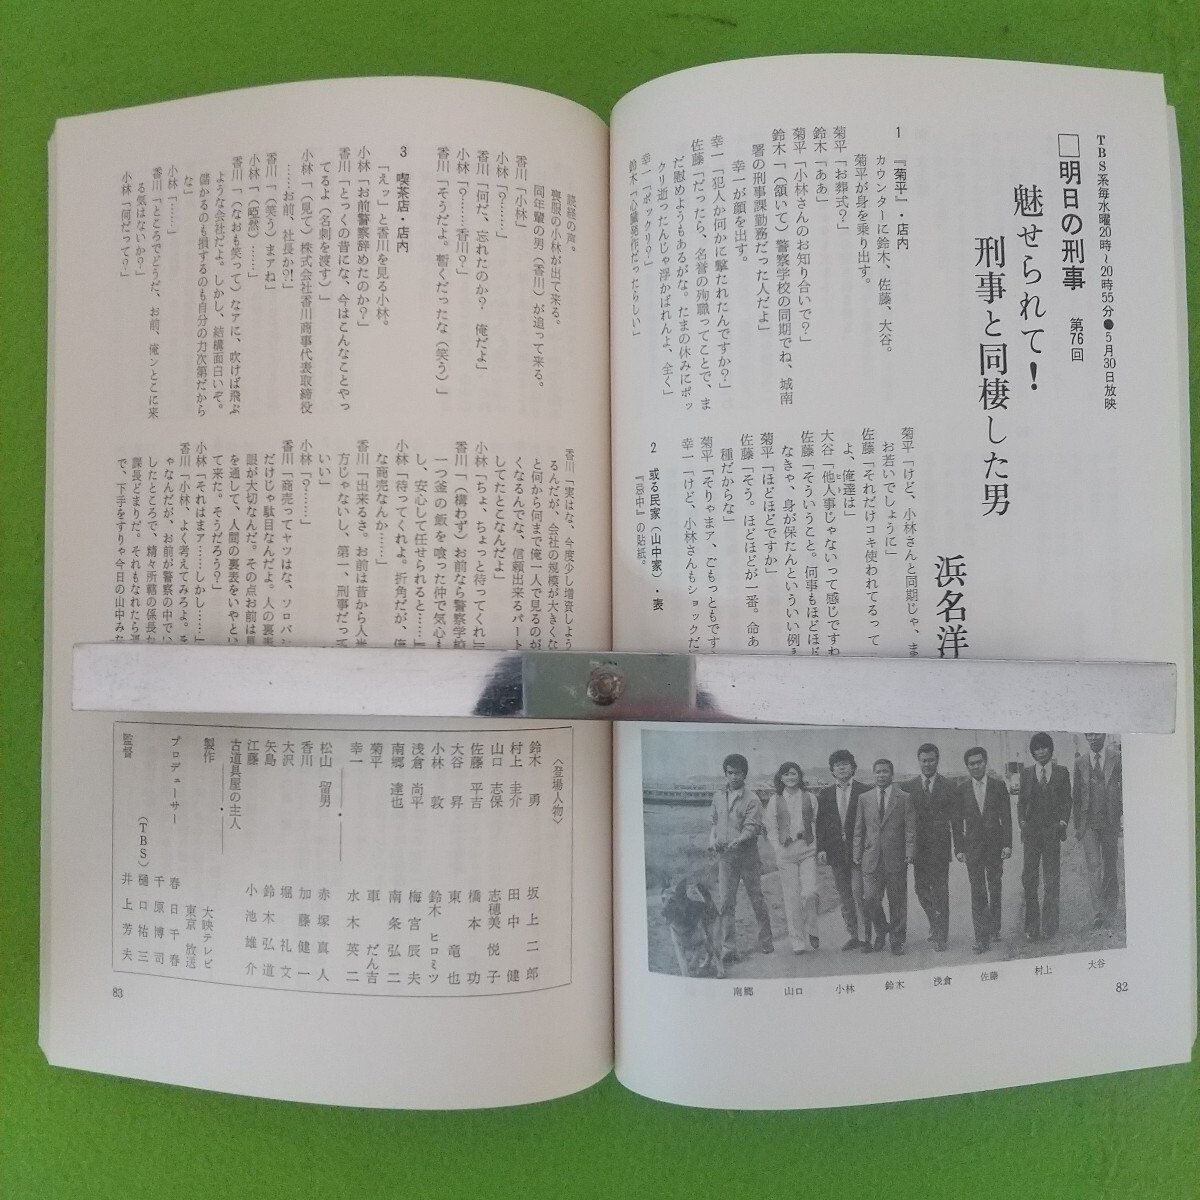 TBS系毎水曜20時〜20時55分●5月30日放映
□明日の刑事 第76回
魅せられて！
刑事と同棲した男
浜名洋
1 『菊平』・店内
カウンターに鈴木、佐藤、大谷。
菊平が身を乗り出す。
菊平「お葬式？」
鈴木「ああ」
菊平「小林さんのお知り合いで？」
鈴木「（頷いて）警察学校の同期でね、城南
署の刑事課勤務だった人だよ」
幸一が顔を出す。
幸一「犯人か何かに撃たれたんですか？」
佐藤「だったら、名誉の殉職ってことで、ま
だ慰めようもあるがな。たまの休みにポッ
クリ逝ったんじゃ浮かばれんよ、全く」
幸一「ポックリ？」
鈴木「心臓発作だったらしい」
菊平「けど、小林さんと同期じゃ、ま
お若いでしょうに」
佐藤「それだけコキ使われてるって
よ、俺達は」
大谷「他人事じゃないって感じですね
佐藤「そういうこと。何事もほどほど
なきゃ、身が保たんといういい例え
菊平「ほどほどですか」
佐藤「そう。ほどほどが一番。命あ
種だからな」
菊平「そりゃまァ、ごもっともです
幸一「けど、小林さんもショックだ
2 或る民家（山中家）・表
『忌中』の貼紙。
南郷
山口
小林
鈴木
浅倉
佐藤
村上
大谷
82
読経の声。
喪服の小林が出て来る。
同年輩の男（香川）が追って来る。
香川「小林」
小林「？……」
香川「何だ、忘れたのか？ 俺だよ」
小林「？……香川？」
香川「そうだよ。暫くだったな（笑う）」
3 喫茶店・店内
「えッ」と香川を見る小林。
小林「お前警察辞めたのか？」
香川「とっくの昔にな、今はこんなことやっ
てるよ（名刺を渡す）」
小林「（見て）株式会社香川商事代表取締役
……お前、社長か？！」
香川「（笑う）まァね」
小林「（唖然）……」
香川「（なおも笑って）なァに、吹けば飛ぶ
ような会社だよ。しかし、結構面白いぞ。
儲かるのも損するのも自分の力次第だから
な」
小林「……」
香川「ところでどうだ、お前、俺ンとこに来
る気はないか？」
小林「何だって？」
香川「実はな、今度少し増資しよう
るんだが、会社の規模が大きくな
と何から何まで俺一人で見るのが
くなるんでな、信頼出来るパート
してたとこなんだよ」
小林「ちょ、ちょっと待ってくれ」
香川「（構わず）お前なら警察学校
一つ釜の飯を喰った仲で気心も
し、安心して任せられると……」
小林「待ってくれよ。折角だが、俺
な商売なんか……」
香川「出来るさ。お前は昔から人当
方じゃないし、第一、刑事だって
いい」
小林「？……」
香川「商売ってヤツはな、ソロバン
だけじゃ駄目なんだよ。人の裏表
眼が大切なんだ。その点お前は
を通して、人間の裏表をいやとい
て来た。そうだろう？」
小林「それはまァ……しかし……」
香川「小林、よく考えてみろよ。
ゃなんだが、お前が警察の中でい
したところで、精々所轄の係長か
課長どまりだ。それもなれたら
で、下手をすりゃ今日の山中みた
〈登場人物〉
鈴木 勇 坂上二郎
村上 圭介 田中 健
山口 志保 志穂美 悦子
佐藤 平吉 橋本 功
大谷 昇 東 竜也
小林 敦 鈴木 ヒロミツ
浅倉 尚平 梅宮辰夫
南郷 達也 南条弘二
菊平 車 だん吉
幸一 水木英二
松山 留男 赤塚真人
香川 加藤健一
大沢 堀 礼文
矢島 鈴木弘道
江藤 小池雄介
古道具屋の主人
製作 大映テレビ
東京放送
プロデューサー 春日千春
千原博司
（TBS）樋口祐三
監督 井上芳夫
83